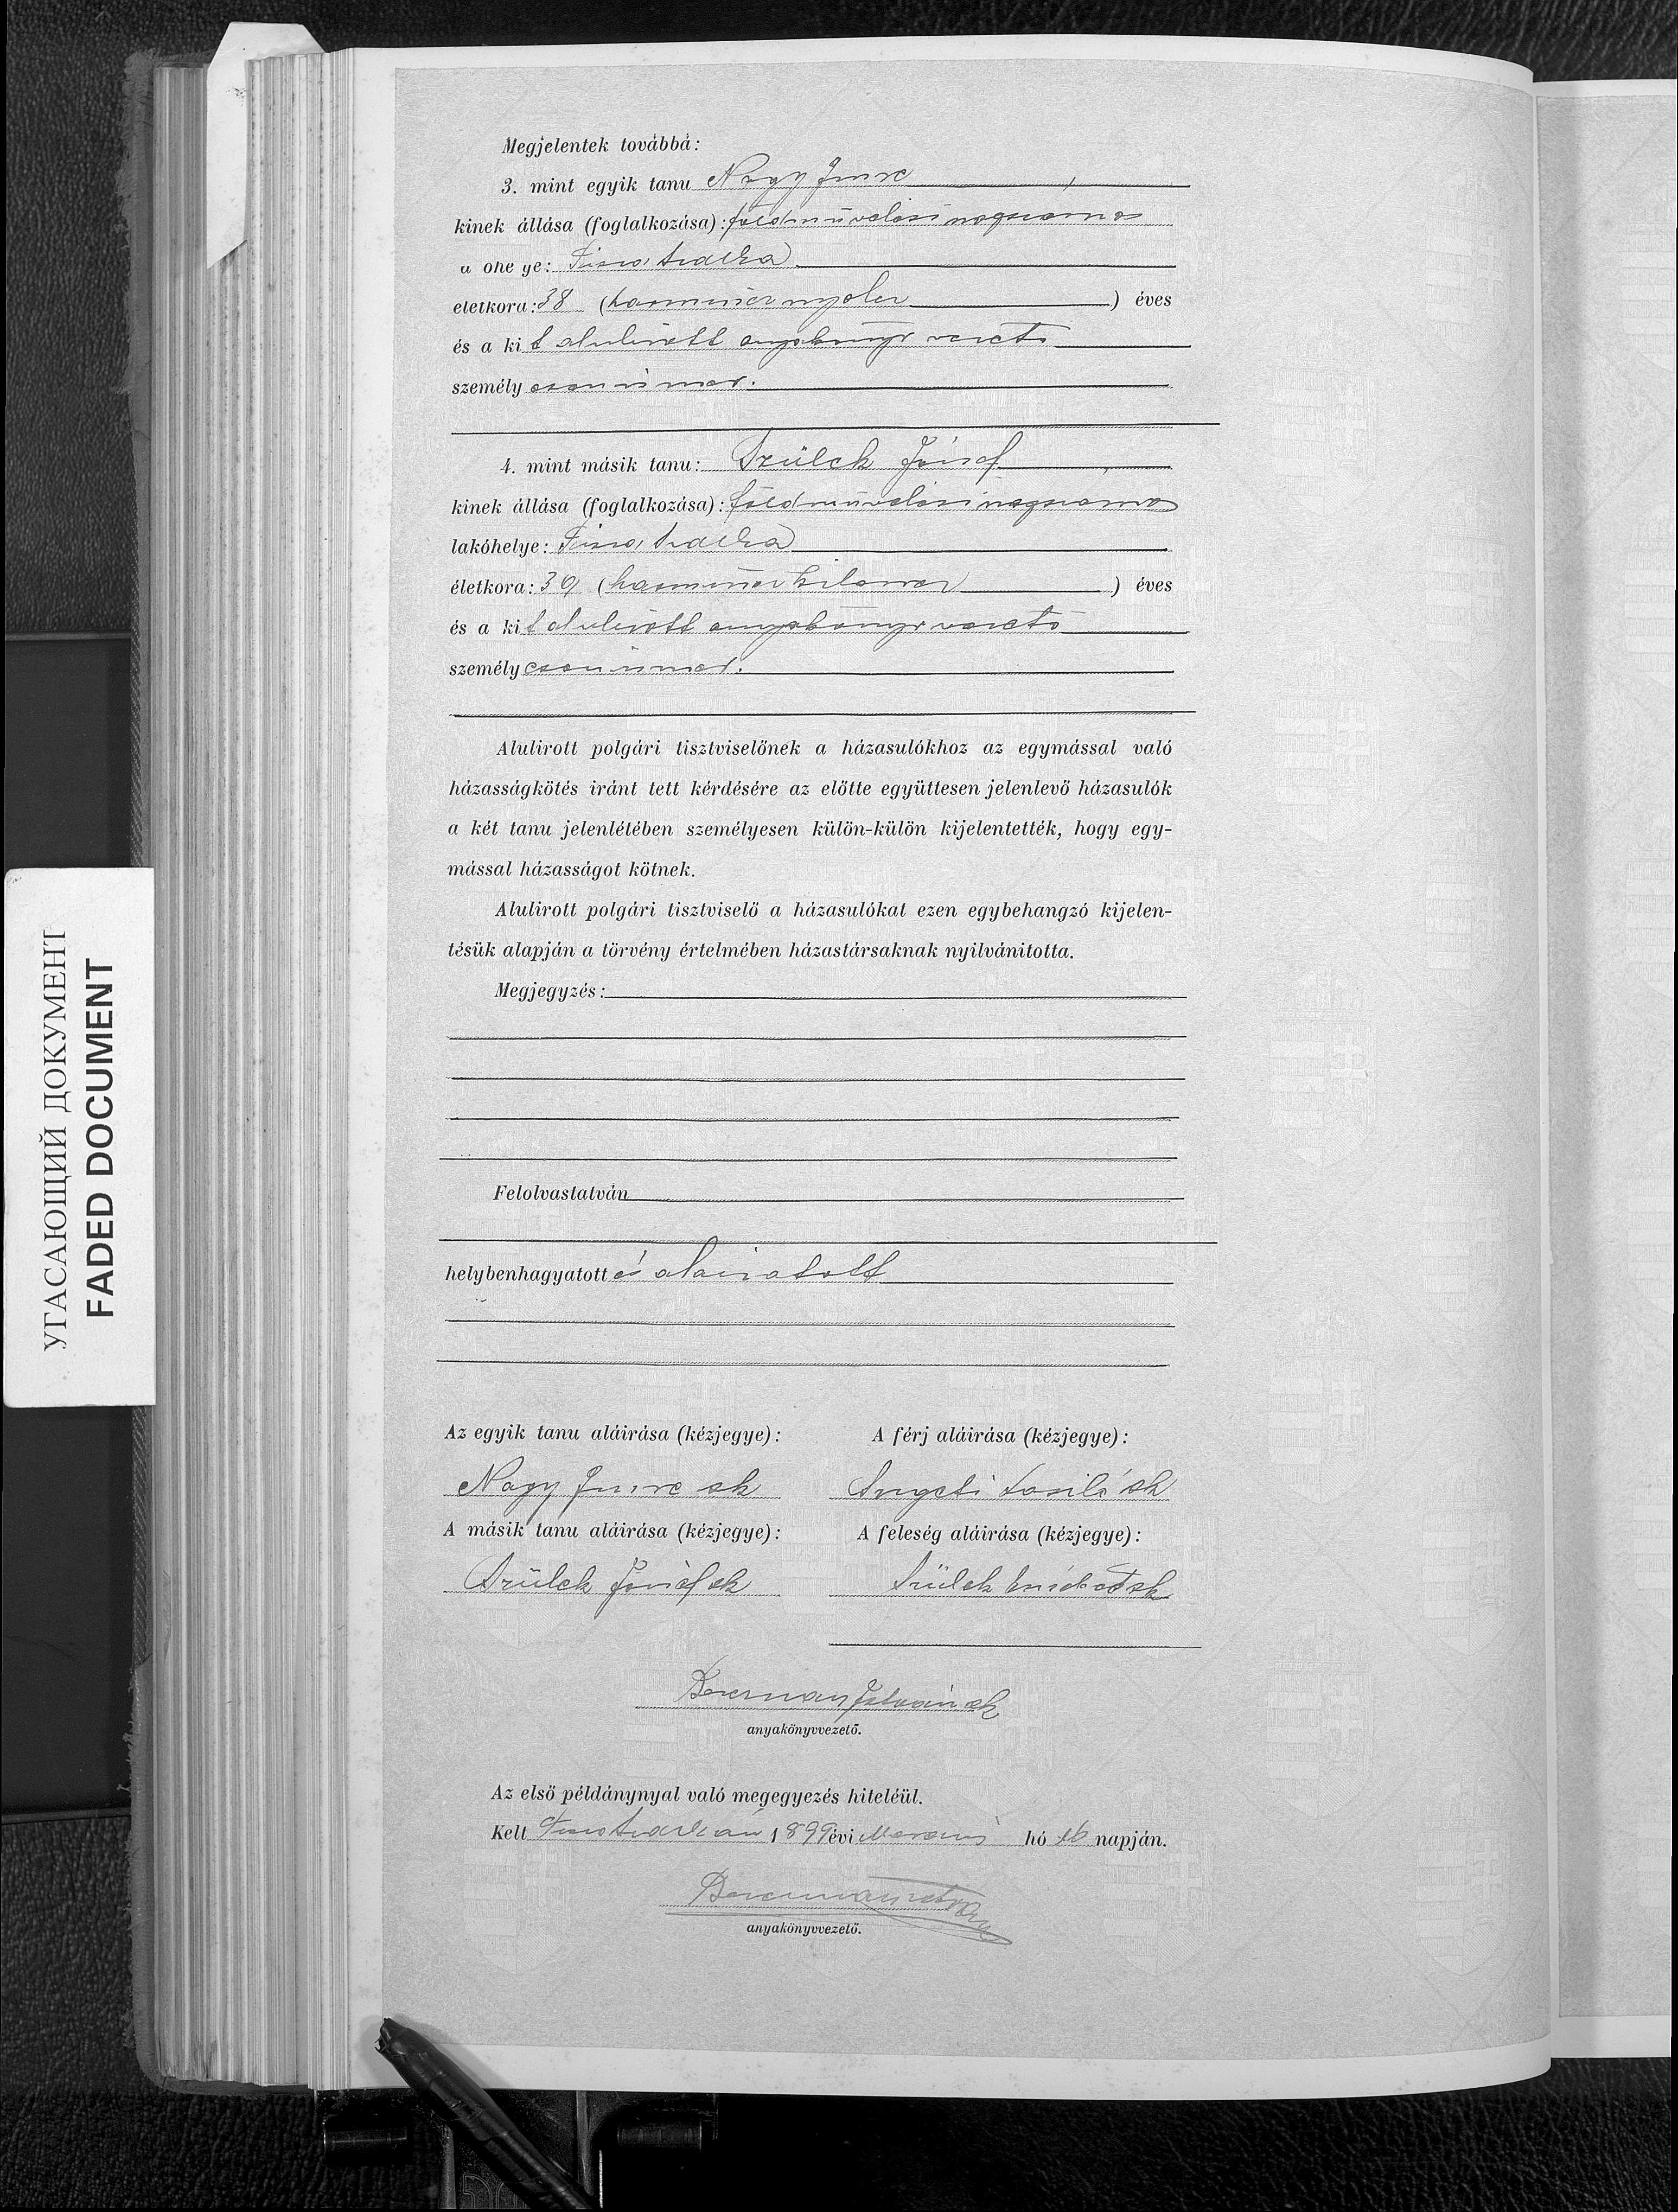 Megjelentek továbbá:
3. mint egyik tanu Nagy Imre
kinek állása (foglalkozása): földmüvelési napszamos
a óhe ye:
életkora: 38 (harmincz nyolcz) éves
és a kit alulirott anyakönyv vezető
személy
4. mint másik tanu: Szülek József
kinek állása (foglalkozása): földmüvelési napszamos
lakóhelye:
életkora: 39 (harmincz kilencz) éves
és a kit alulirott anyakönyv vezető
személy
Alulirott polgári tisztviselőnek a házasulókhoz az egymással való
házasságkötés iránt tett kérdésére az előtte együttesen jelenlevő házasulók
a két tanu jelenlétében személyesen külön-külön kijelentették, hogy egy-
mással házasságot kötnek.
Alulirott polgári tisztviselő a házasulókat ezen egybehangzó kijelen-
tésük alapján a törvény értelmében házastársaknak nyilvánitotta.
Megjegyzés:
Felolvastatván
helybenhagyatott és aláiratott
Az egyik tanu aláirása (kézjegye):
Nagy Imre sk
A férj aláirása (kézjegye):
László sk
A másik tanu aláirása (kézjegye):
Szülek József sk
A feleség aláirása (kézjegye):
Szülek Erzsébet sk
István sk
anyakönyvvezető.
Az első példánynyal való megegyezés hiteléül.
Kelt 1899 évi hó 16 napján.
István
anyakönyvvezető.
УГАСАЮЩИЙ ДОКУМЕНТ
FADED DOCUMENT